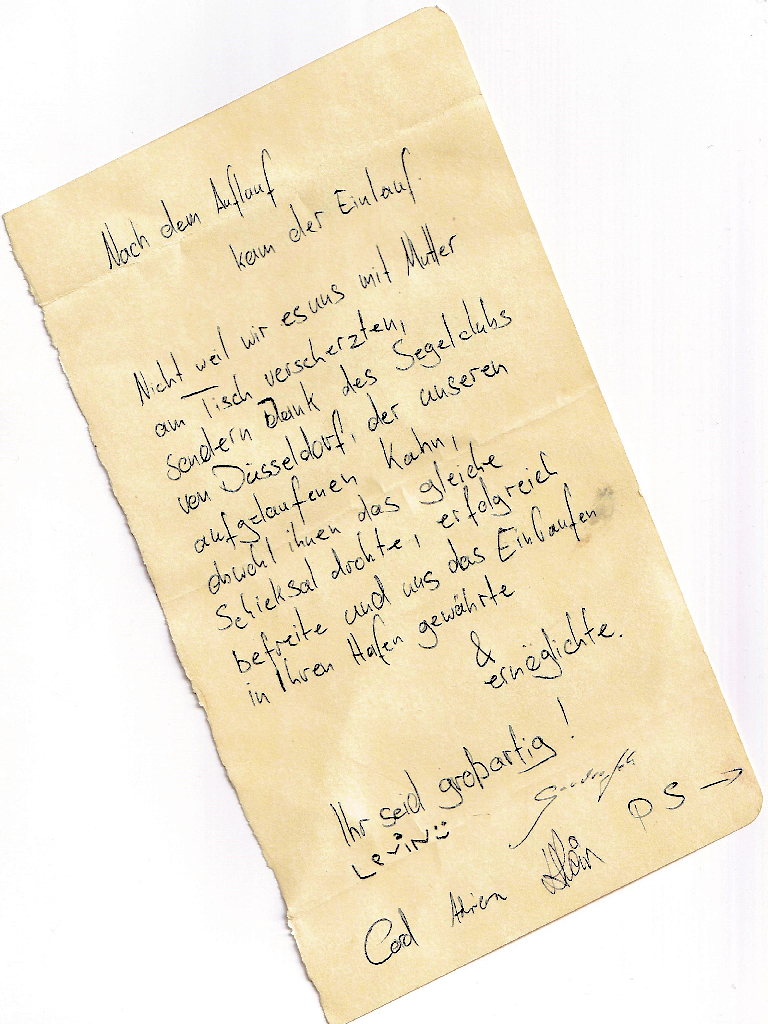 Nach dem Auflauf
kam der Einlauf.
Nicht weil wir es uns mit Mutter
am Tisch verscherzten,
sondern Dank des Segelclubs
von Düsseldorf, der unseren
aufgelaufenen Kahn,
obwohl ihnen das gleiche
Schicksal drohte, erfolgreich
befreite und uns das Einlaufen
in Ihren Hafen gewährte
&
ermöglichte.
Ihr seid großartig!
LeviN
PS →
Adrian